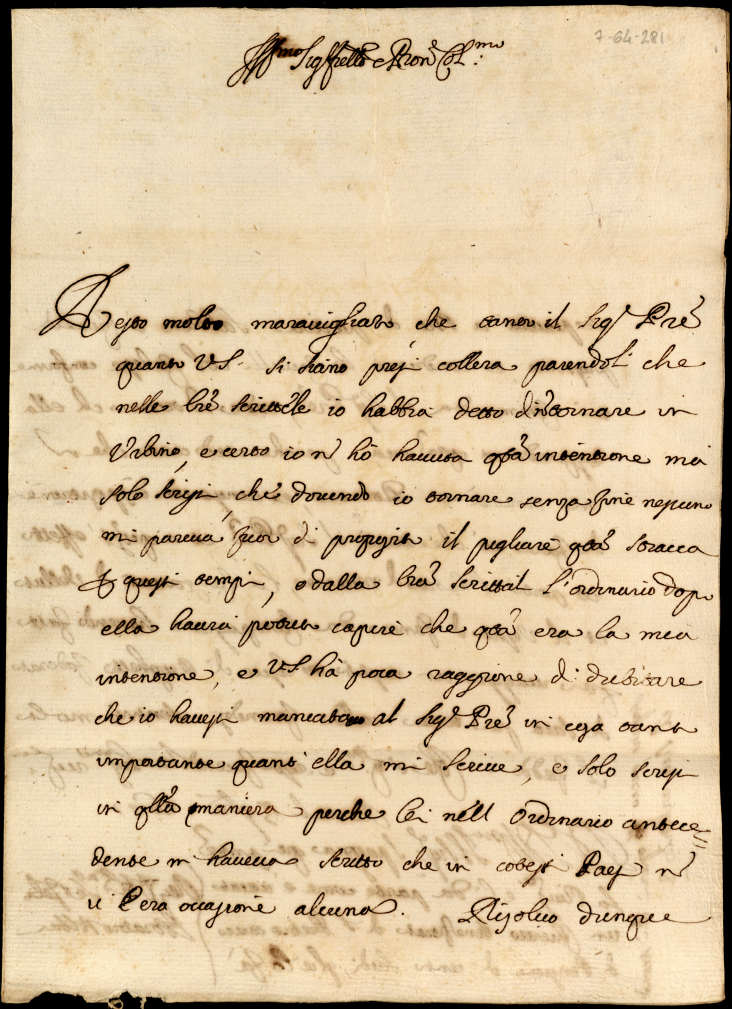 7-64-281
Ill.mo Sig.r Frello e Pron Col.mo
Resto molto maravigliato che tanto il Sig.r Pre
quanto V.S. si siano presi collera parendoli che
nelle lre scritteli io habbia detto di ritornare in
Urbino, e certo io nò hò havuta qsta intentione mà
solo scrissi, che dovendo io tornare senza fine nessuno
mi pareva fuor di proposito il pigliare qsta stracca
p questi tempi, e dalla lra scrittali l'ordinario dopo
ella haurà potuto capire che qsta era la mia
intentione, e V.S. hà poca raggione di dubitare
che io havessi mancato al Sig.r Pre in cosa tanto
importante quanto ella mi scrive, e solo scrissi
in qlla maniera perche lei nell Ordinario antece=
dente mi haveva scritto che in cotesti Paesi nò
vi era occasione alcuna. Risolvo dunque